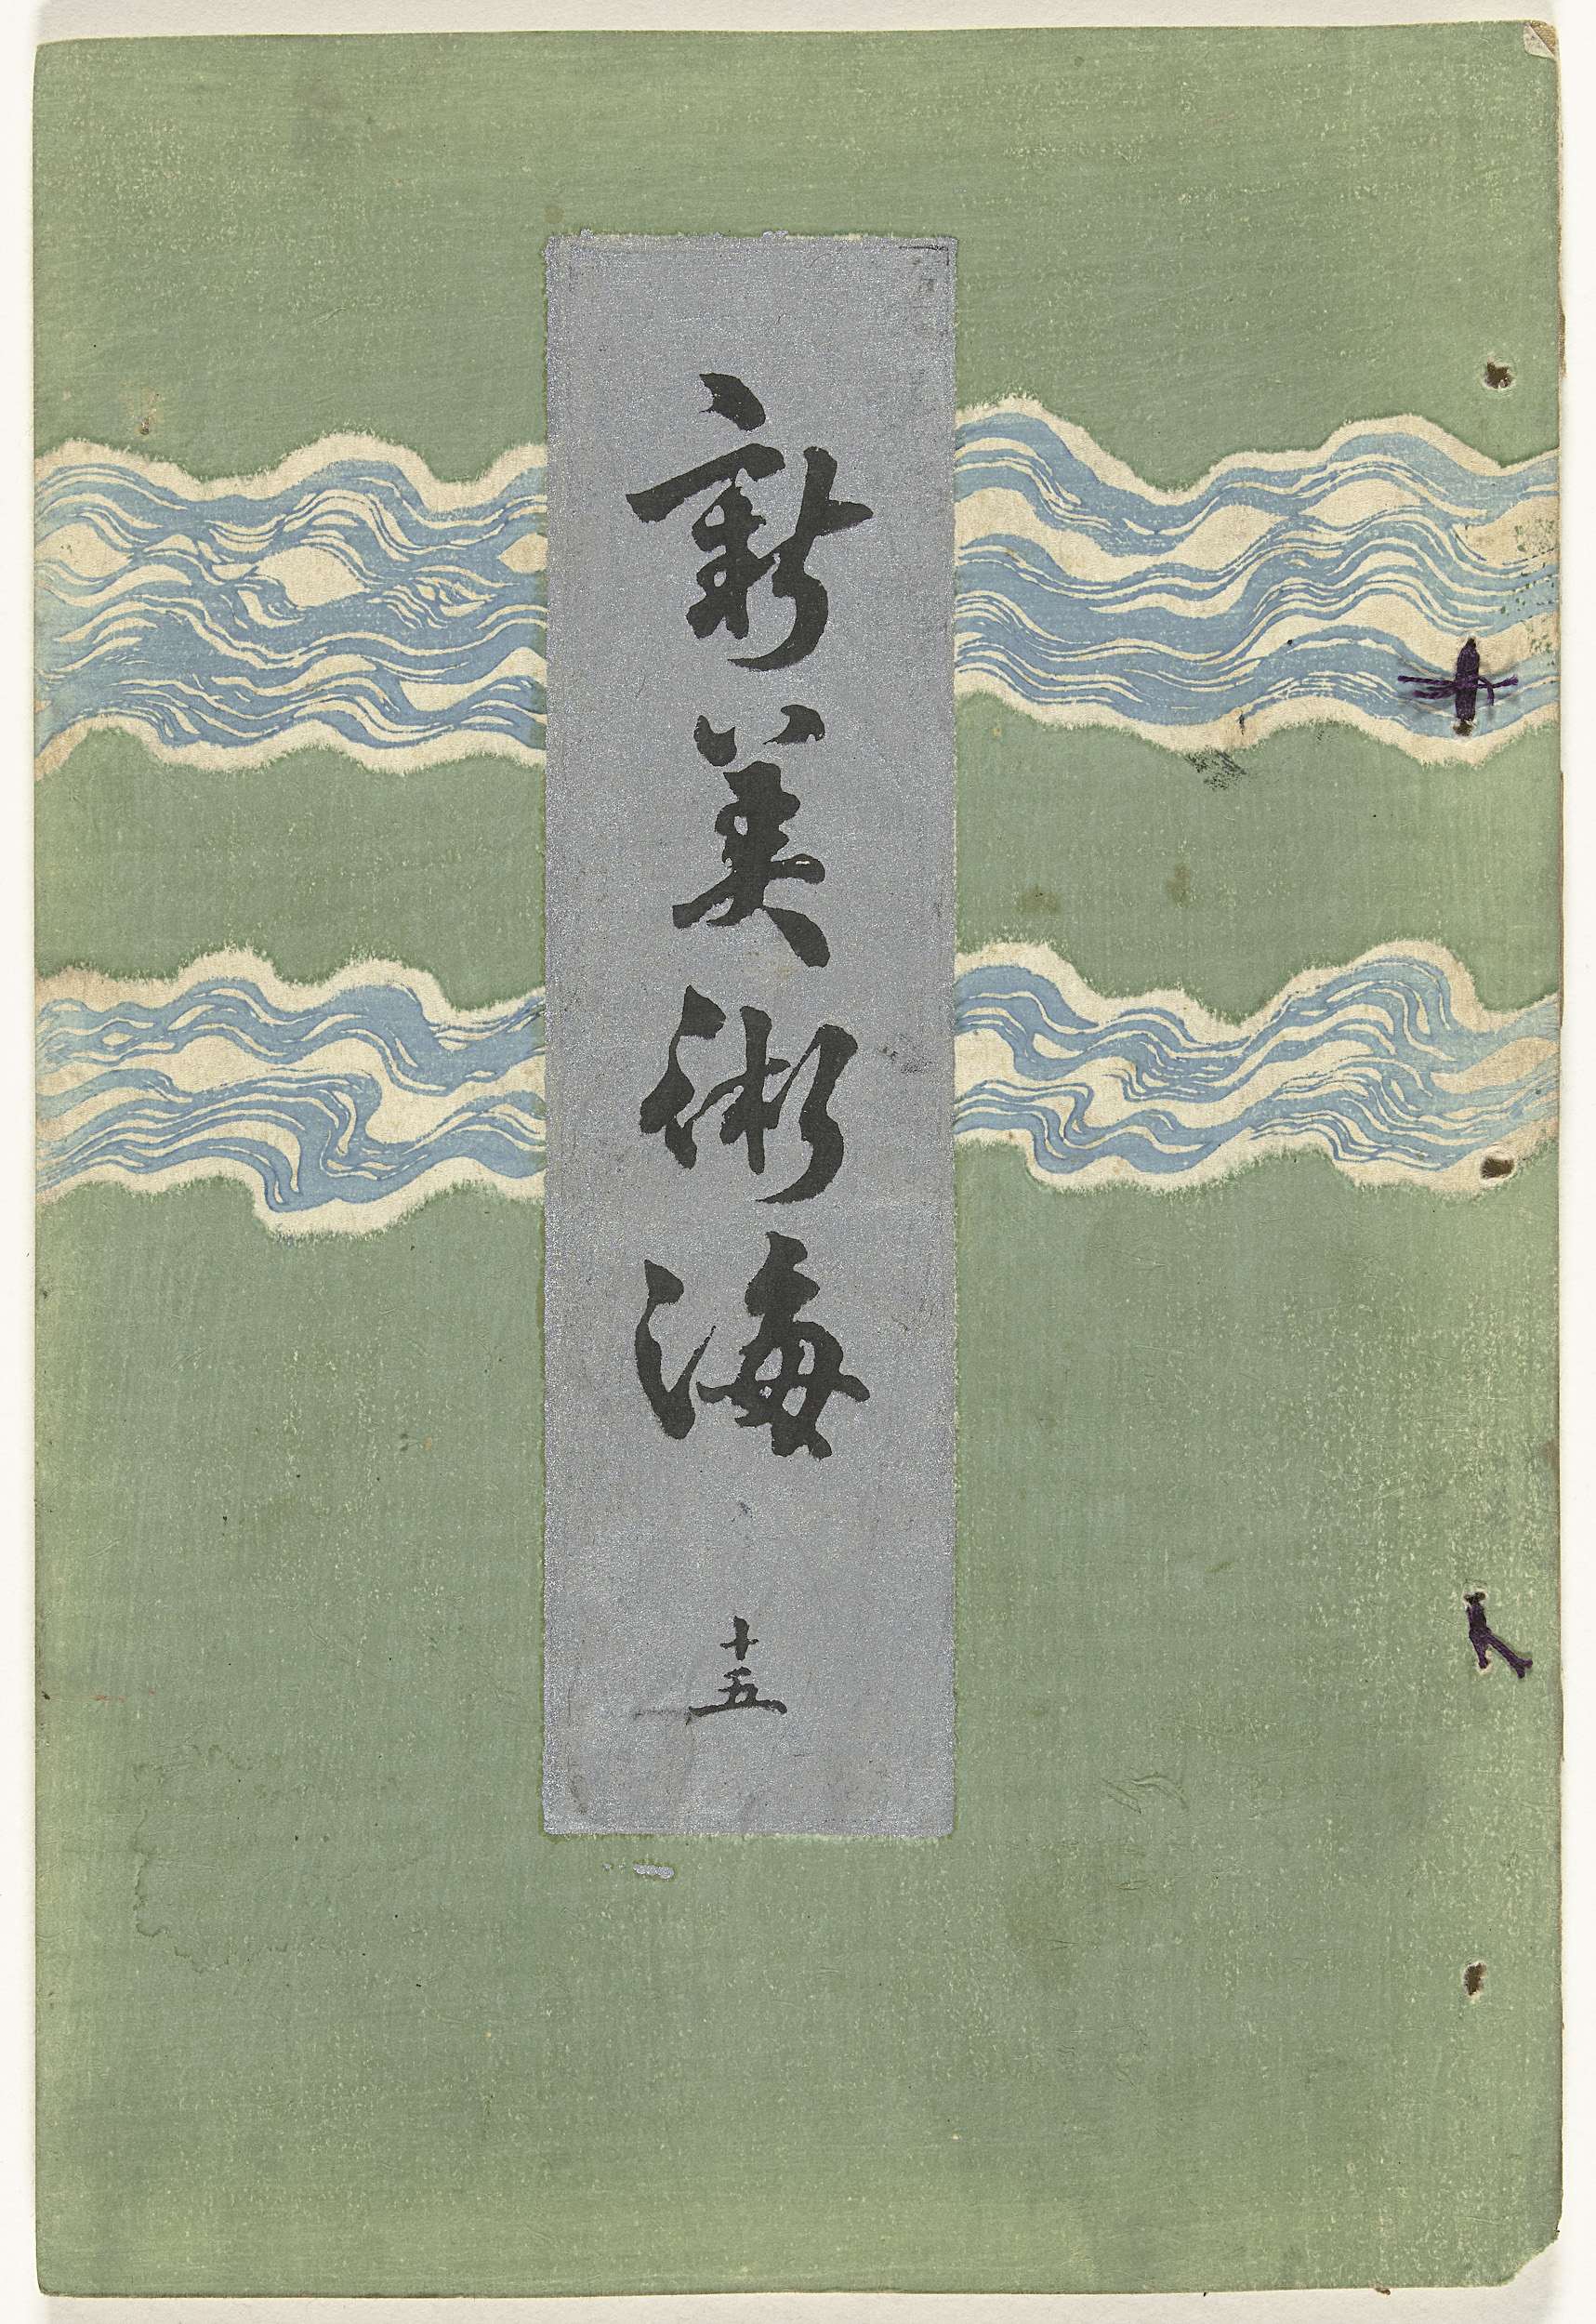 新美術海
十五